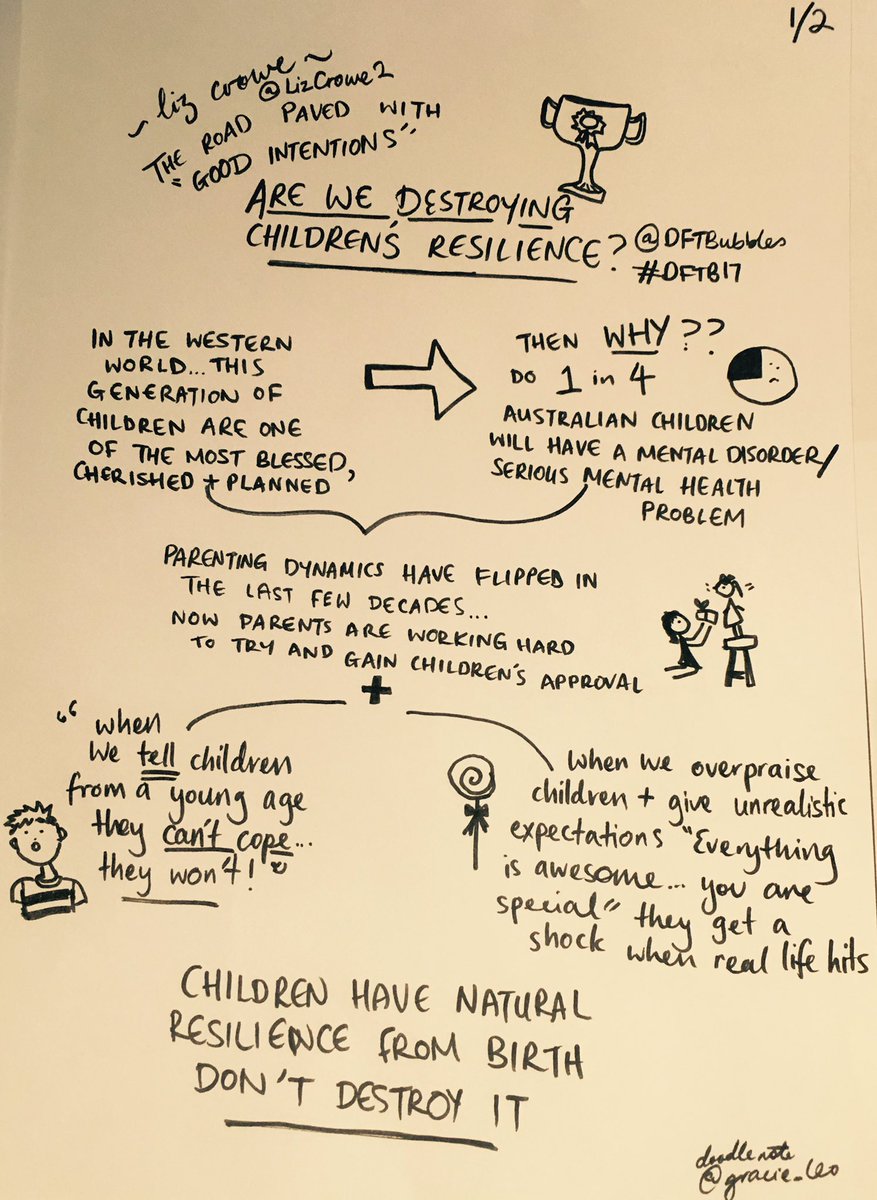 1/2
~ liz crowe ~
@LizCrowe2
THE ROAD PAVED WITH
"GOOD INTENTIONS"
ARE WE DESTROYING
CHILDREN'S RESILIENCE?
@DFTBubbles
#DFTB17
IN THE WESTERN
WORLD... THIS
GENERATION OF
CHILDREN ARE ONE
OF THE MOST BLESSED,
CHERISHED + PLANNED
THEN WHY??
DO 1 in 4
AUSTRALIAN CHILDREN
WILL HAVE A MENTAL DISORDER/
SERIOUS MENTAL HEALTH
PROBLEM
PARENTING DYNAMICS HAVE FLIPPED IN
THE LAST FEW DECADES...
NOW PARENTS ARE WORKING HARD
TO TRY AND GAIN CHILDREN'S APPROVAL
+
"when
we tell children
from a young age
they can't cope...
they won't!"
when we overpraise
children + give unrealistic
expectations "Everything
is awesome... you are
special" they get a
shock when real life hits
CHILDREN HAVE NATURAL
RESILIENCE FROM BIRTH
DON'T DESTROY IT
doodlenote
@gracie_leo